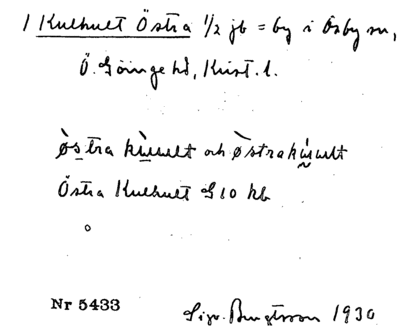 1 Kulhult Östra ½ jb = by i Osby sn,
Ö. Göinge hd, Krist. l.
östra kùsult och östrakúsult
Östra Kulhult G 10 kb
Nr 5433 Sigv. Bengtsson 1930